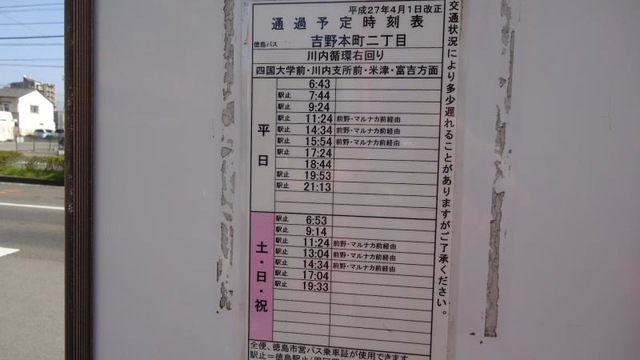 平成27年4月1日改正
通過予定時刻表
徳島バス 吉野本町二丁目
川内循環右回り
四国大学前・川内支所前・米津・富吉方面
平日
6:43
駅止 7:44
駅止 9:24
駅止 11:24 前野・マルナカ前経由
駅止 14:34 前野・マルナカ前経由
駅止 15:54 前野・マルナカ前経由
駅止 17:24
18:44
駅止 19:53
駅止 21:13
土・日・祝
駅止 6:53
駅止 9:14
駅止 11:24 前野・マルナカ前経由
駅止 13:04 前野・マルナカ前経由
駅止 14:34 前野・マルナカ前経由
駅止 17:04
駅止 19:33
全便、徳島市営バス乗車証が使用できます
駅止=徳島駅止
交通状況により多少遅れることがありますがご了承ください。